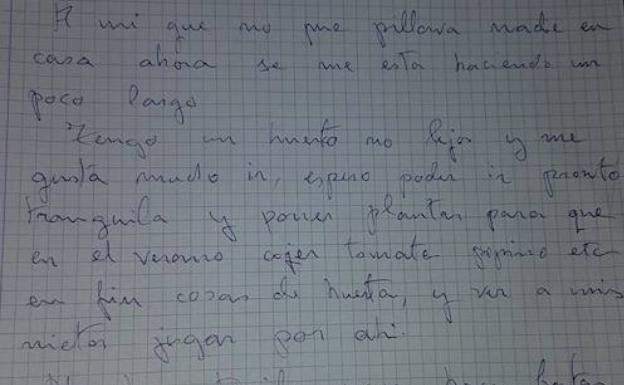 A mi que no me pillava nadie en
casa ahora se me esta haciendo un
poco largo
Tengo un huerto no lejos y me
gusta mucho ir, espero poder ir pronto
tranquila y poner plantas para que
en el verano cojer tomate pepino etc
en fin cosas de huerta, y ver a mis
nietos jugar por ahi.